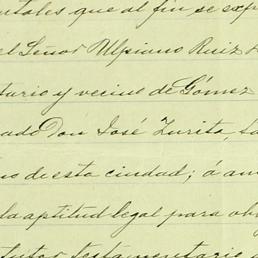 tales que al fin se exp
el Señor Ulpiano Ruiz
tario y vecino de Gómez
ado Don José Zurita, ta
no de esta ciudad; á am
la aptitud legal para ob
tutor testamentario